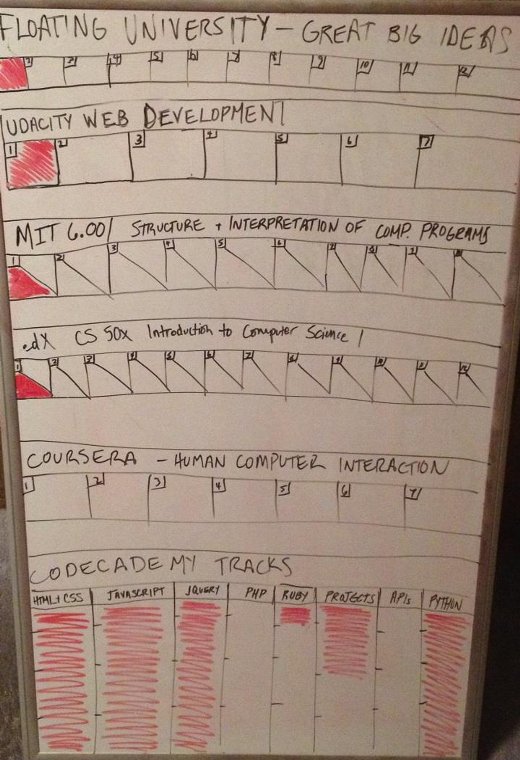 FLOATING UNIVERSITY – GREAT BIG IDEAS
1 2 4 5 6 7 8 9 10 11 12
UDACITY WEB DEVELOPMENT
1 2 3 4 5 6 7
MIT 6.001 STRUCTURE + INTERPRETATION OF COMP. PROGRAMS
1 2 3 4 5 6 7
edX CS 50x Introduction to Computer Science 1
1 2 3 4 5 6 7 8 9
COURSERA – HUMAN COMPUTER INTERACTION
1 2 3 4 5 6 7
CODECADEMY TRACKS
HTML/CSS JAVASCRIPT JQUERY PHP RUBY PROJECTS APIs PYTHON